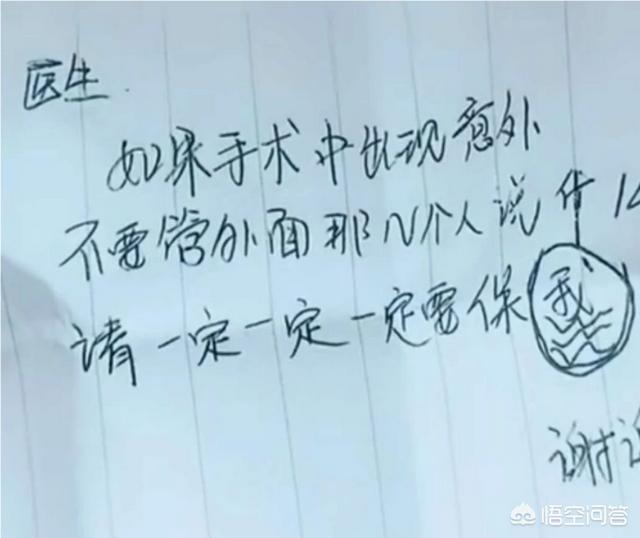 医生
如果手术中出现意外
不要管外面那几个人说什
请一定一定一定要保我
谢
悟空问答